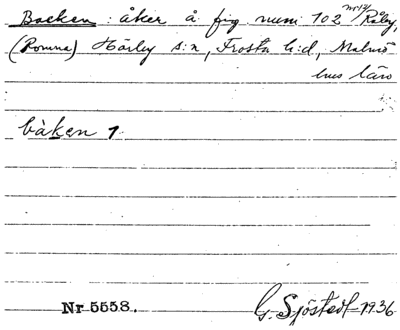 Backen : åker å fig num 102 nr 12 Råby,
(Romma) Hörby s:n, Frosta h:d, Malmö
hus län
bàken 1
Nr 5558. G. Sjöstedt 1936